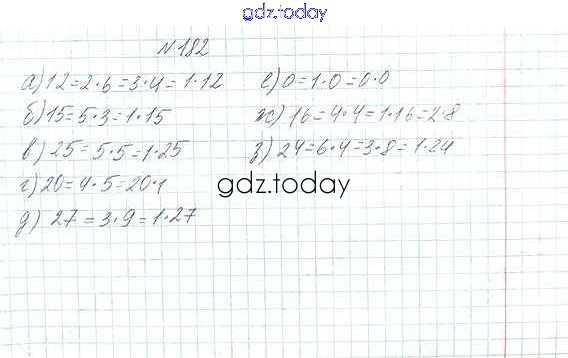 gdz.today
№182
а) 12=2·6=3·4=1·12
б) 15=5·3=1·15
в) 25=5·5=1·25
г) 20=4·5=20·1
д) 27=3·9=1·27
е) 0=1·0=0·0
ж) 16=4·4=1·16=2·8
з) 24=6·4=3·8=1·24
gdz.today